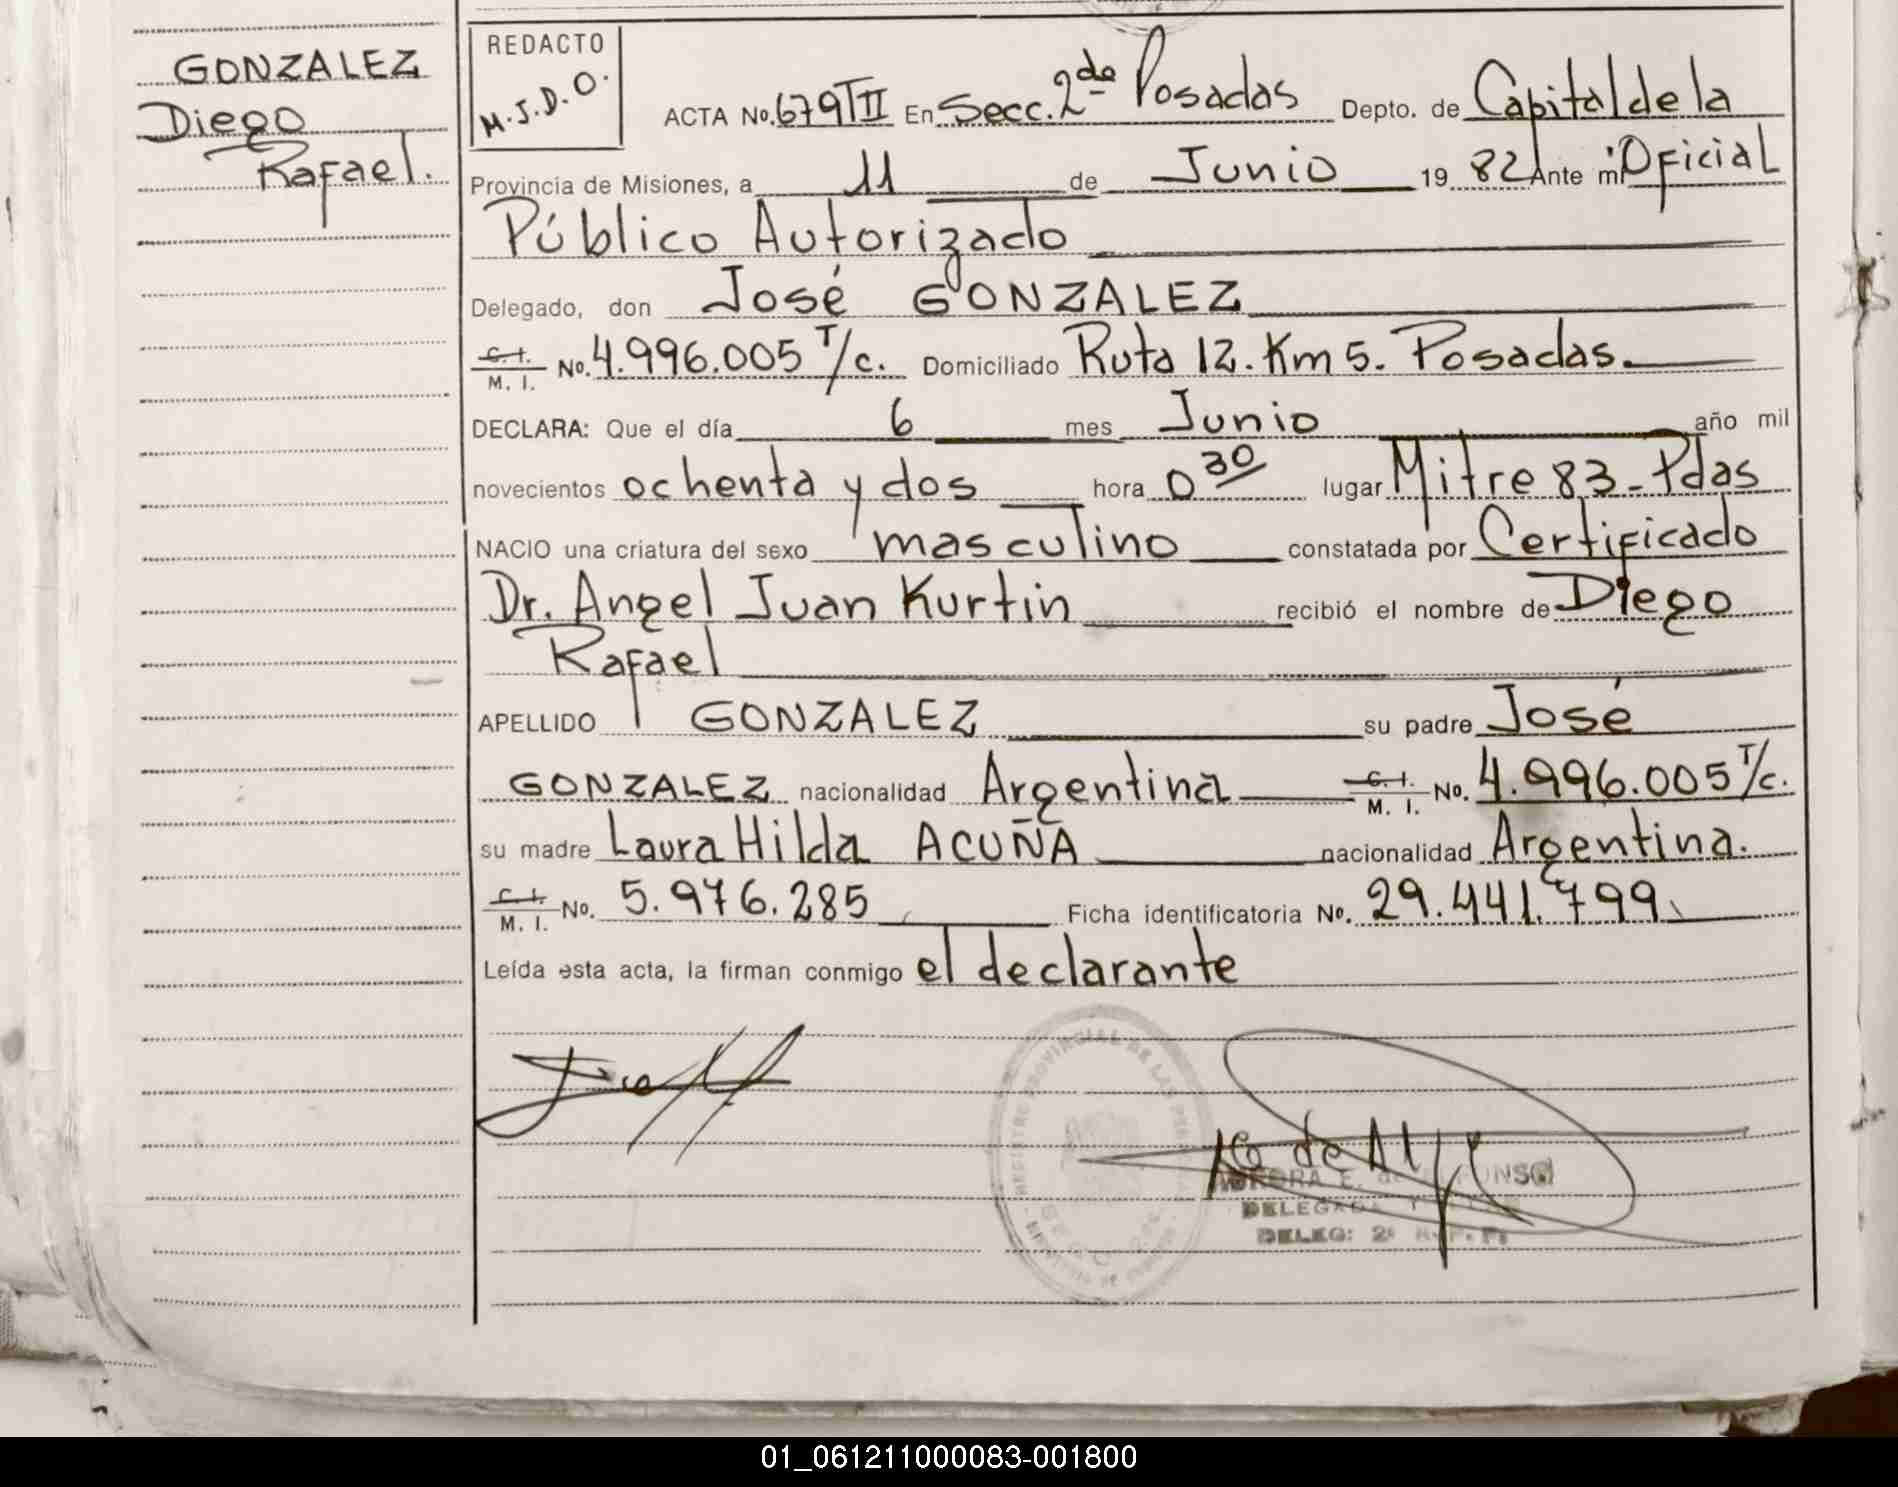 GONZALEZ
Diego
Rafael.
REDACTO
M.J.D.O.
ACTA No. 679TII En Secc. 2da Posadas Depto. de Capital de la
Provincia de Misiones, a 11 de Junio 1982 Ante mi Oficial
Público Autorizado
Delegado, don José GONZALEZ
C.I. M. I. No. 4.996.005 T/c. Domiciliado Ruta 12. Km 5. Posadas.
DECLARA: Que el día 6 mes Junio año mil
novecientos ochenta y dos hora 0 30 lugar Mitre 83 - Pdas
NACIO una criatura del sexo masculino constatada por Certificado
Dr. Angel Juan Kurtin recibió el nombre de Diego
Rafael
APELLIDO GONZALEZ su padre José
GONZALEZ nacionalidad Argentina C.I. M. I. No. 4.996.005 T/c.
su madre Laura Hilda ACUÑA nacionalidad Argentina.
C.I. M. I. No. 5.976.285 Ficha identificatoria No. 29.441.799.
Leída esta acta, la firman conmigo el declarante
REGISTRO PROVINCIAL DE LAS
AURORA E. de
DELEGADA
DELEG: 2ª R. P. P.
01_061211000083-001800